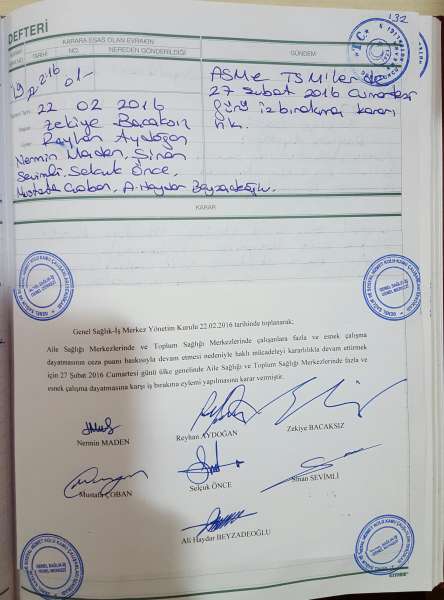 132
DEFTERİ
KARARA ESAS OLAN EVRAKIN
TARİHİ
NO.
NEREDEN GÖNDERİLDİĞİ
GÜNDEM
ASM ve TSM'lerde
27 Şubat 2016 Cumartesi
günü iş bırakma kararı
22 02 2016
Zekiye Bacaksız
Reyhan Aydoğan
Nermin Maden, Sinan
Sevimli, Selçuk Önce,
Mustafa Çoban, A. Haydar Beyzadeoğlu.
KARAR
Genel Sağlık-İş Merkez Yönetim Kurulu 22.02.2016 tarihinde toplanarak;
Aile Sağlığı Merkezlerinde ve Toplum Sağlığı Merkezlerinde çalışanlara fazla ve esnek çalışma
dayatmasının ceza puanı baskısıyla devam etmesi nedeniyle haklı mücadeleyi kararlılıkla devam ettirmek
için 27 Şubat 2016 Cumartesi günü ülke genelinde Aile Sağlığı ve Toplum Sağlığı Merkezlerinde fazla ve
esnek çalışma dayatmasına karşı iş bırakma eylemi yapılmasına karar vermiştir.
Nermin MADEN
Reyhan AYDOĞAN
Zekiye BACAKSIZ
Mustafa ÇOBAN
Selçuk ÖNCE
Sinan SEVİMLİ
Ali Haydar BEYZADEOĞLU